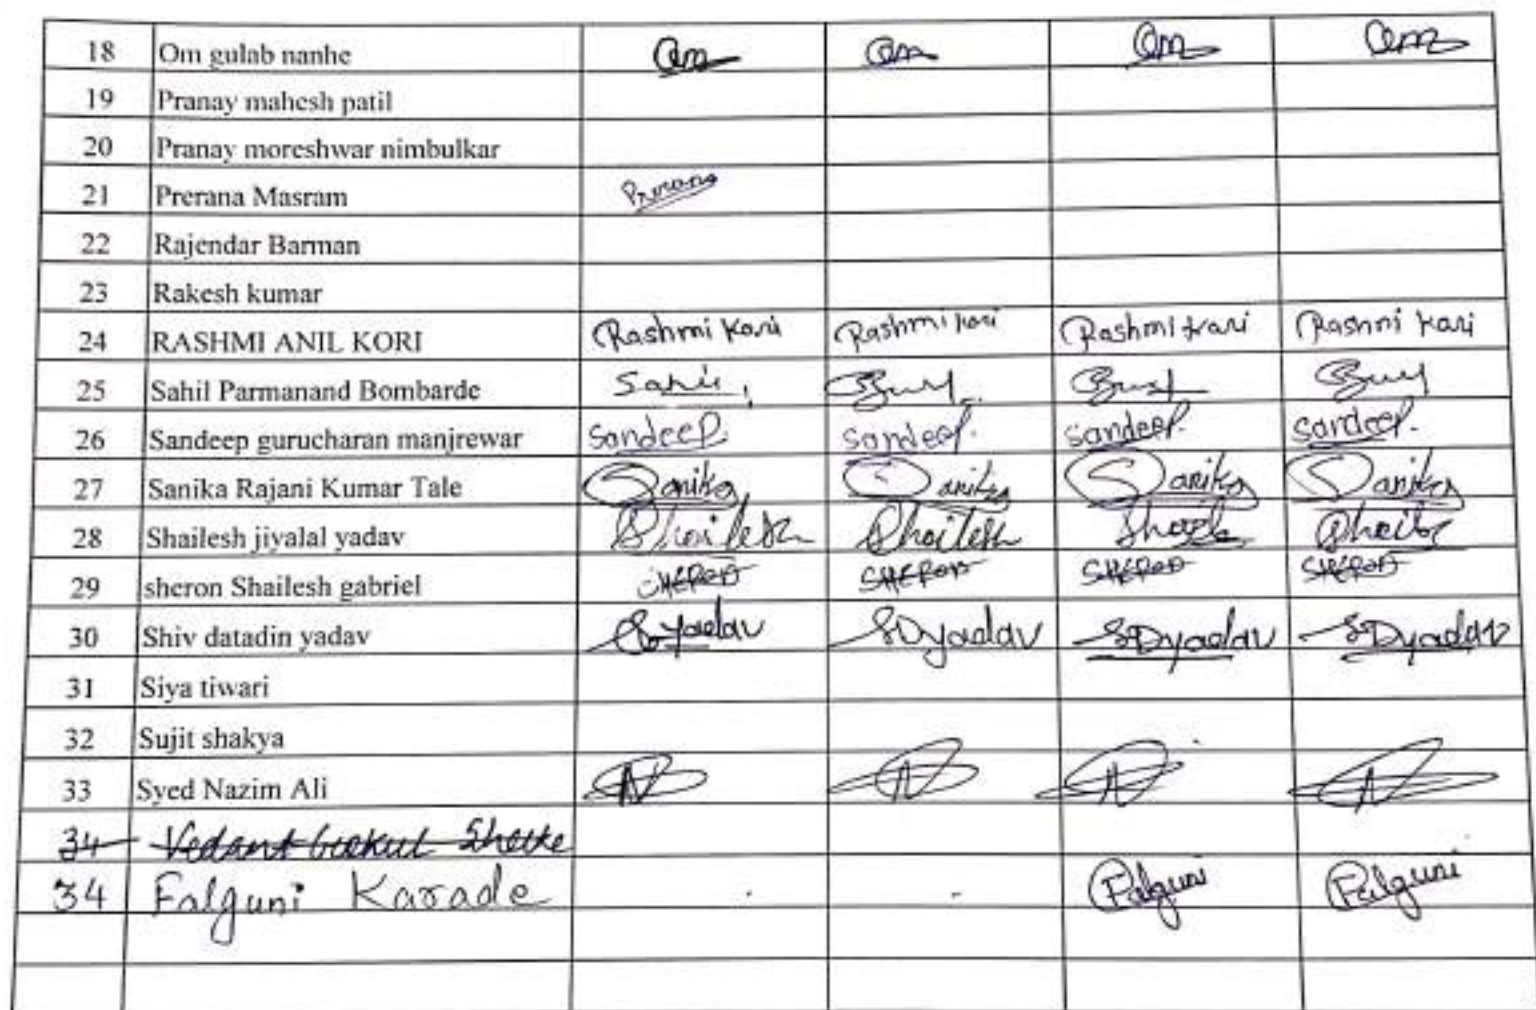 18 Om gulab nanhe Om Om Om Om
19 Pranay mahesh patil
20 Pranay moreshwar nimbulkar
21 Prerana Masram Prerana
22 Rajendar Barman
23 Rakesh kumar
24 RASHMI ANIL KORI Rashmi Kori Rashmi kori Rashmi kori Rashmi kori
25 Sahil Parmanand Bombarde Sahil
26 Sandeep gurucharan manjrewar Sandeep Sandeep. Sandeep. Sandeep.
27 Sanika Rajani Kumar Tale Sanika Sanika Sanika Sanika
28 Shailesh jiyalal yadav Shailesh Shailesh
29 sheron Shailesh gabriel SHERON SHERON SHERON SHERON
30 Shiv datadin yadav SDyadav SDyadav SDyadav
31 Siya tiwari
32 Sujit shakya
33 Syed Nazim Ali
34 Vedant
34 Falguni Karade Falguni Falguni